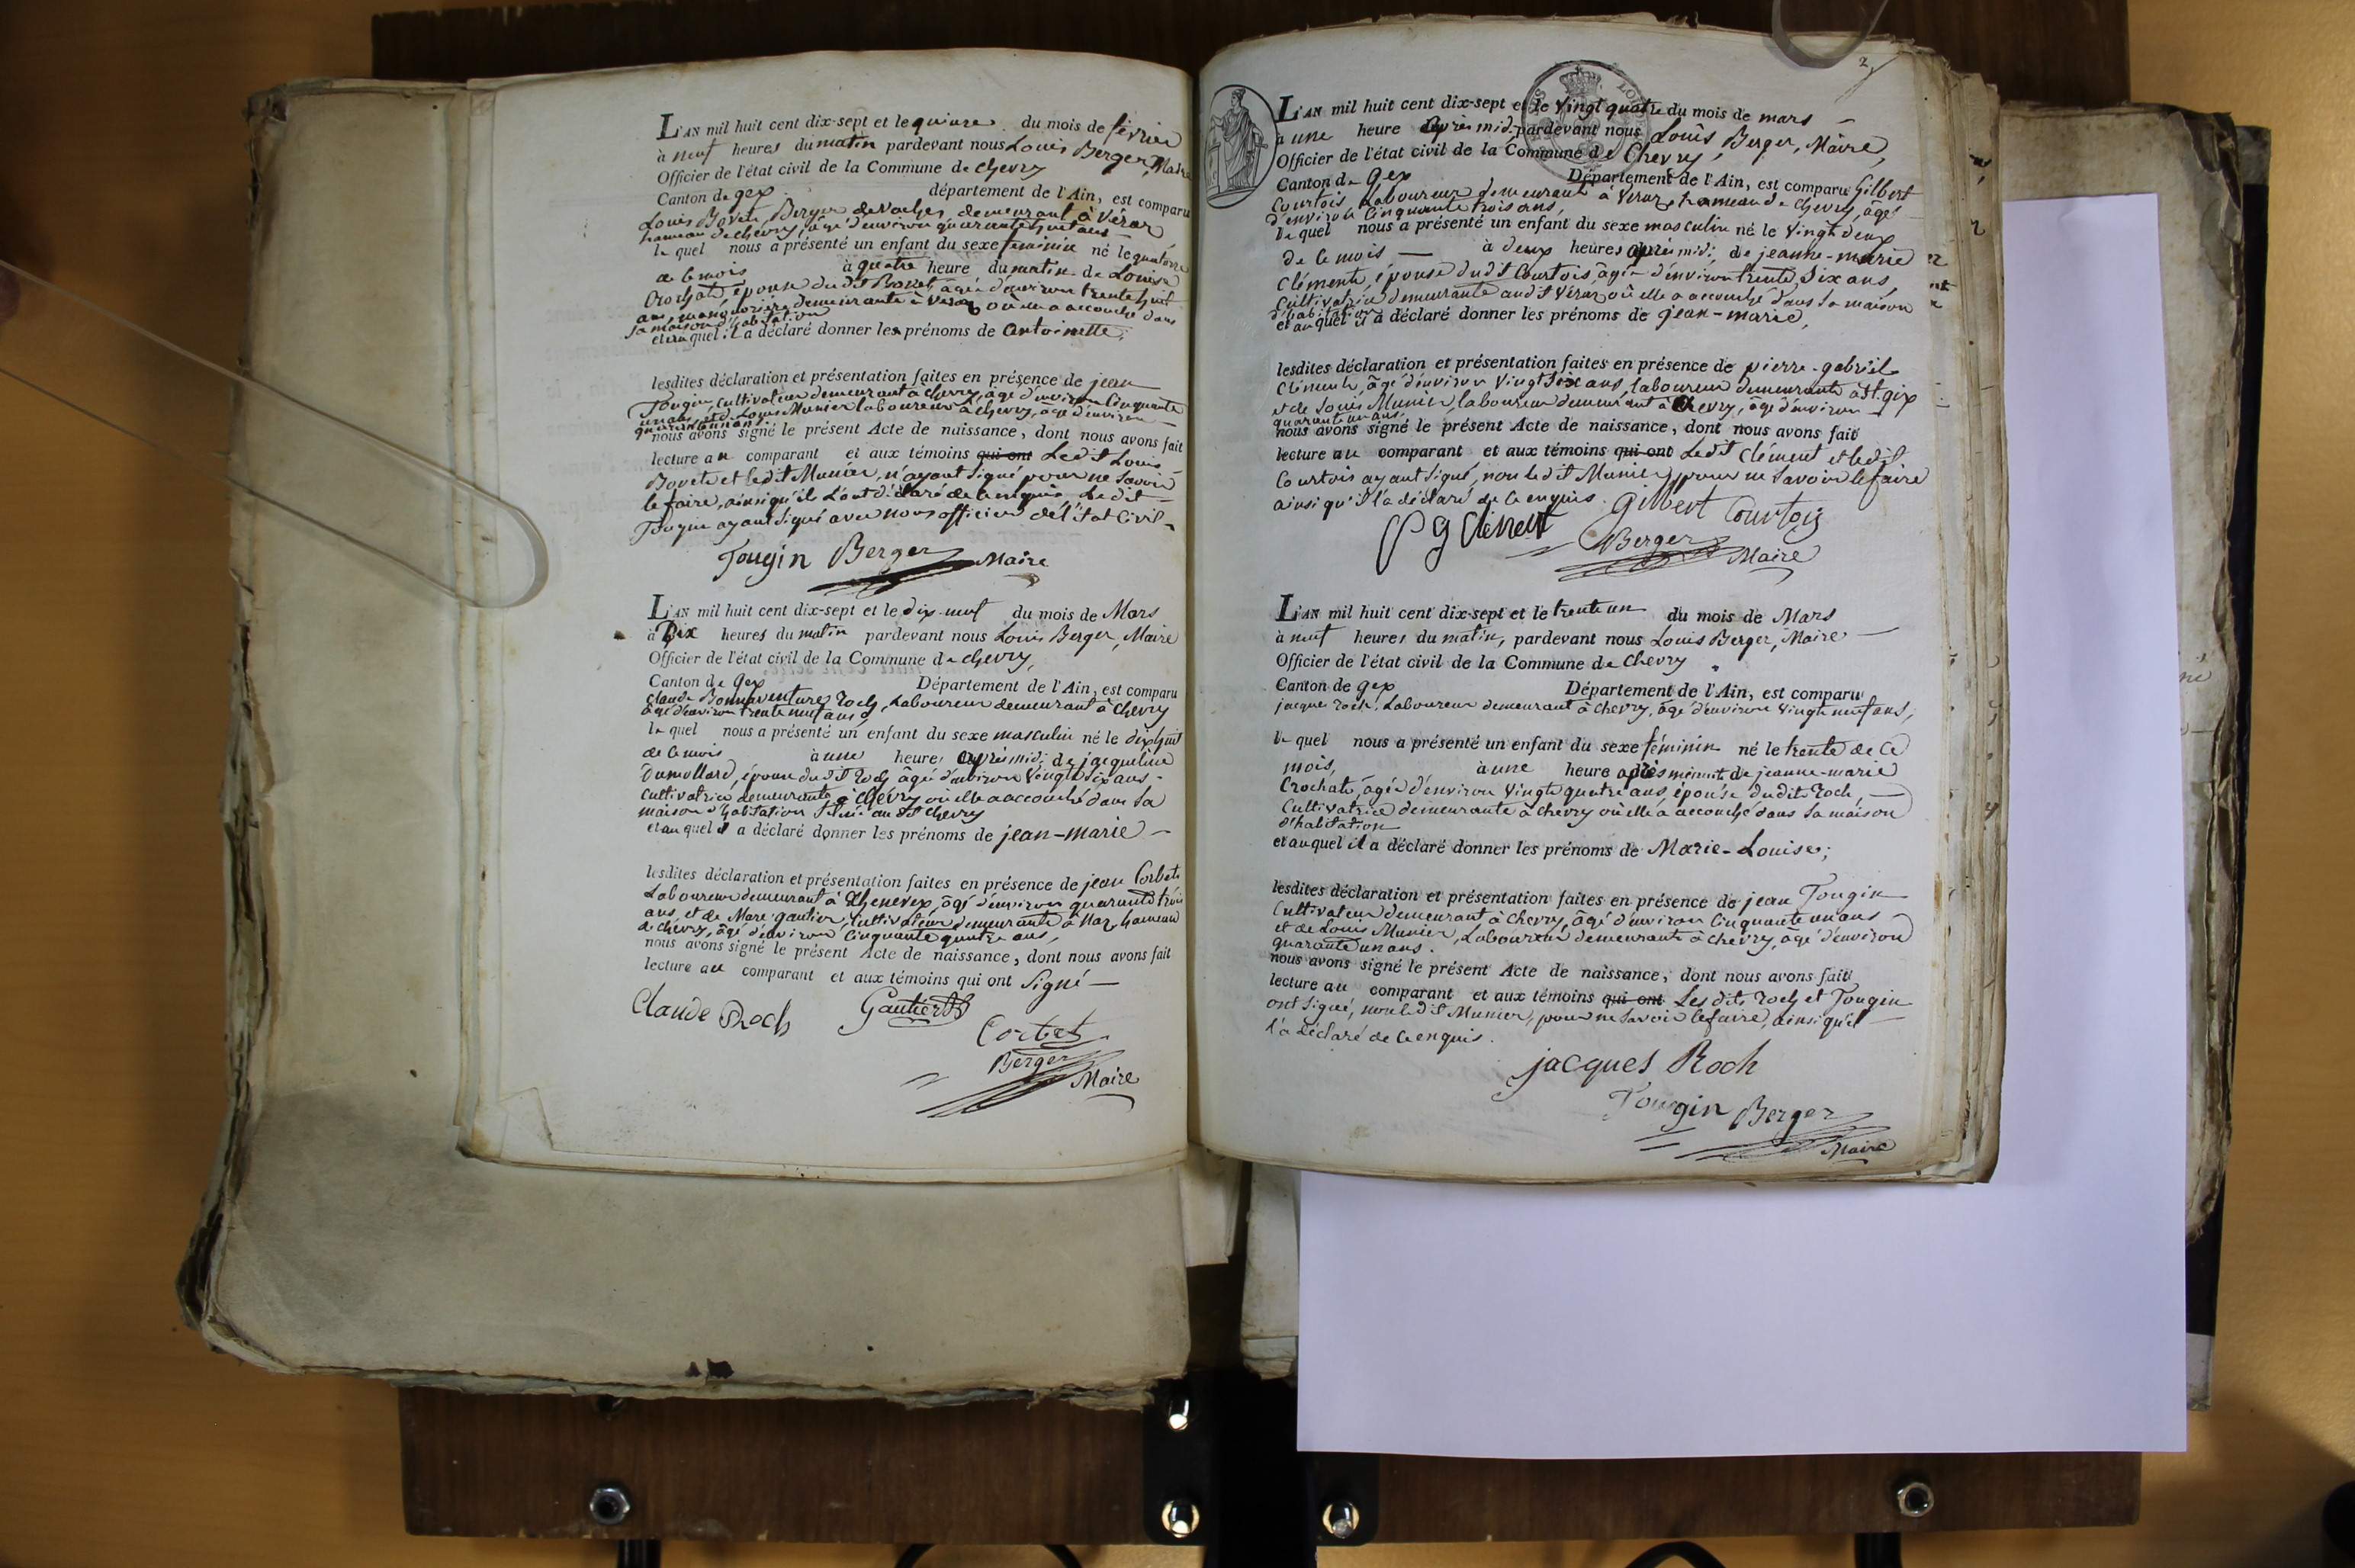 L'AN mil huit cent dix-sept et le quinze du mois de février
à neuf heures du matin pardevant nous Louis Berger, Maire
Officier de l'état civil de la Commune de chevry
Canton de gex département de l'Ain, est comparu
Louis Bovet, Berger de vaches, demeurant à Véraz
hameau de chevry, âgé d'environ quarante huit ans
le quel nous a présenté un enfant du sexe feminin né le quatorze
de ce mois à quatre heure du matin de Louise
Crochat, épouse dudit Bovet, âgée d'environ trente huit
ans, demeurante à Veraz où elle a accouché dans
sa maison d'habitation
et auquel il a déclaré donner les prénoms de Antoinette,
lesdites déclaration et présentation faites en présence de jean
Tougin, cultivateur demeurant à chevry, âgé d'environ Cinquante
un ans, et de Louis Munier laboureur à chevry, âgé d'environ
quarante un ans
nous avons signé le présent Acte de naissance, dont nous avons fait
lecture au comparant et aux témoins qui ont Ledit Louis
Bovet et ledit Munier, n'ayant signé pour ne savoir
le faire, ainsi qu'ils l'ont déclaré de ce enquis, Ledit
Tougin ayant signé avec nous officier de l'état Civil
Tougin Berger Maire
L'AN mil huit cent dix-sept et le dix-neuf du mois de Mars
à Dix heures du matin pardevant nous Louis Berger, Maire
Officier de l'état civil de la Commune de chevry,
Canton de gex Département de l'Ain, est comparu
Claude Bonnaventure Roch, Laboureur demeurant à Chevry
âgé d'environ trente neuf ans
le quel nous a présenté un enfant du sexe masculin né le dix huit
de ce mois à une heure après midi de jacqueline
Dumollard, épouse dudit Roch âgée d'environ vingt six ans
cultivatrice demeurante à Chevry où elle a accouché dans sa
maison d'habitation située audit Chevry
et au quel il a déclaré donner les prénoms de jean-marie
lesdites déclaration et présentation faites en présence de jean Corbet
Laboureur demeurant à Chenevex, âgé d'environ quarante trois
ans, et de Marc gautier, Cultivateur demeurante à Naz, hameau
de chévry, âgé d'environ Cinquante quatre ans,
nous avons signé le présent Acte de naissance, dont nous avons fait
lecture au comparant et aux témoins qui ont Signé
Claude Roch Gautier
Corbet
Berger
Maire
2
L'AN mil huit cent dix-sept et le vingt quatre du mois de mars
à une heure après midi pardevant nous Louis Berger, Maire,
Officier de l'état civil de la Commune de Chevry,
Canton de Gex Département de l'Ain, est comparu Gilbert
Courtois, Laboureur demeurant à Veraz, hameau de Chevry, âgé
d'environ Cinquante trois ans,
le quel nous a présenté un enfant du sexe masculin né le vingt deux
de ce mois à deux heures après midi, de jeanne-marie
Clémente, épouse dudit Courtois âgée d'environ trente six ans,
Cultivatrice demeurante audit Véraz, où elle a accouché dans sa maison
d'habitation
et auquel il a déclaré donner les prénoms de jean-marie,
lesdites déclaration et présentation faites en présence de pierre-gabriël
Clément, âgé d'environ vingt six ans, laboureur demeurante à St. gix
et de Louis Munier, laboureur demeurant à Chevry, âgé d'environ
quarante un ans,
nous avons signé le présent Acte de naissance, dont nous avons fait
lecture au comparant et aux témoins qui ont Ledit Clément et ledit
Courtois ayant signé, non ledit Munier, pour ne savoir le faire
ainsi qu'il l'a déclaré de ce enquis. Gilbert Courtois
P g Clément
Berger
Maire
L'AN mil huit cent dix-sept et le trente un du mois de Mars
à neuf heures du matin, pardevant nous Louis Berger, Maire
Officier de l'état civil de la Commune de Chevry
Canton de gex Département de l'Ain, est comparu
jacques Roch, Laboureur demeurant à Chevry, âgé d'environ vingt neuf ans,
le quel nous a présenté un enfant du sexe féminin né le trente de ce
mois, à une heure après minuit de jeanne-marie
Crochat, âgée d'environ vingt quatre ans, épouse dudit Roch,
Cultivatrice demeurante à Chevry où elle a accouché dans sa maison
d'habitation
et auquel il a déclaré donner les prénoms de Marie-Louise;
lesdites déclaration et présentation faites en présence de jean Tougin
Cultivateur demeurant à Chevry, âgé d'environ Cinquante un ans
et de Louis Munier, Laboureur demeurant à Chevry, âgé d'environ
quarante un ans.
nous avons signé le présent Acte de naissance, dont nous avons fait
lecture au comparant et aux témoins qui ont Les dits Roch et Tougin
ont signé, non ledit Munier, pour ne savoir le faire, ainsi qu'il
l'a déclaré de ce enquis.
jacques Roch
Tougin Berger
Maire